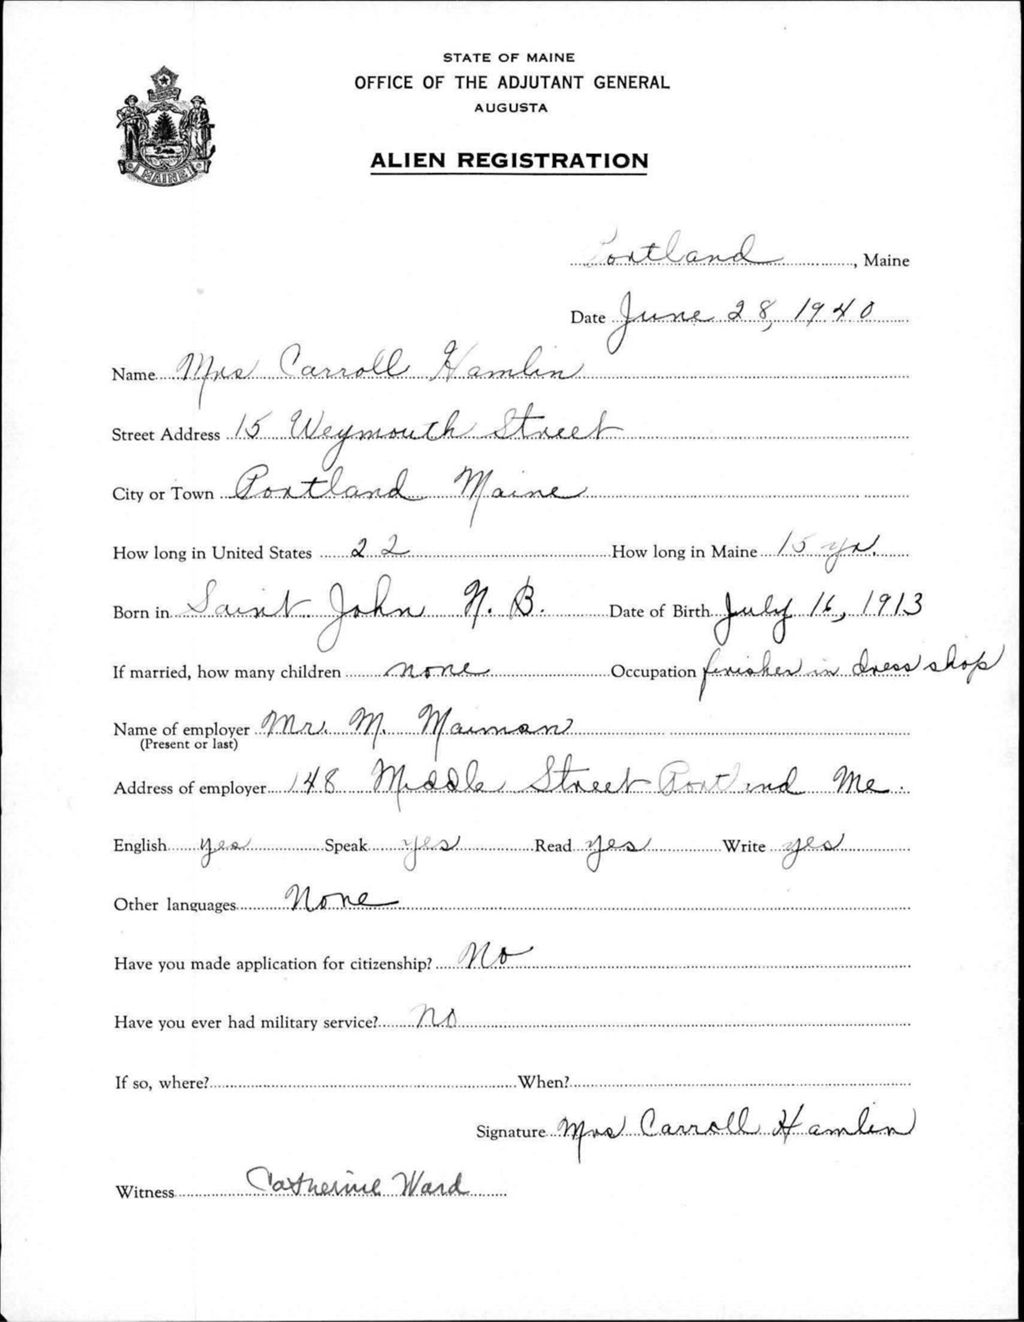 STATE OF MAINE
OFFICE OF THE ADJUTANT GENERAL
AUGUSTA
ALIEN REGISTRATION
Portland, Maine
Date June 28, 1940
Name Mrs Carroll Hamlin
Street Address 15 Weymouth Street
City or Town Portland Maine
How long in United States 22 How long in Maine 15 yr.
Born in Saint John N. B. Date of Birth July 16, 1913
If married, how many children none Occupation finisher in dress shop
Name of employer Mr. M. Maiman
(Present or last)
Address of employer 148 Middle Street Portland Me.
English yes Speak yes Read yes Write yes
Other languages None
Have you made application for citizenship? No
Have you ever had military service? No
If so, where? When?
Signature Mrs Carroll Hamlin
Witness Catherine Ward
MAINE